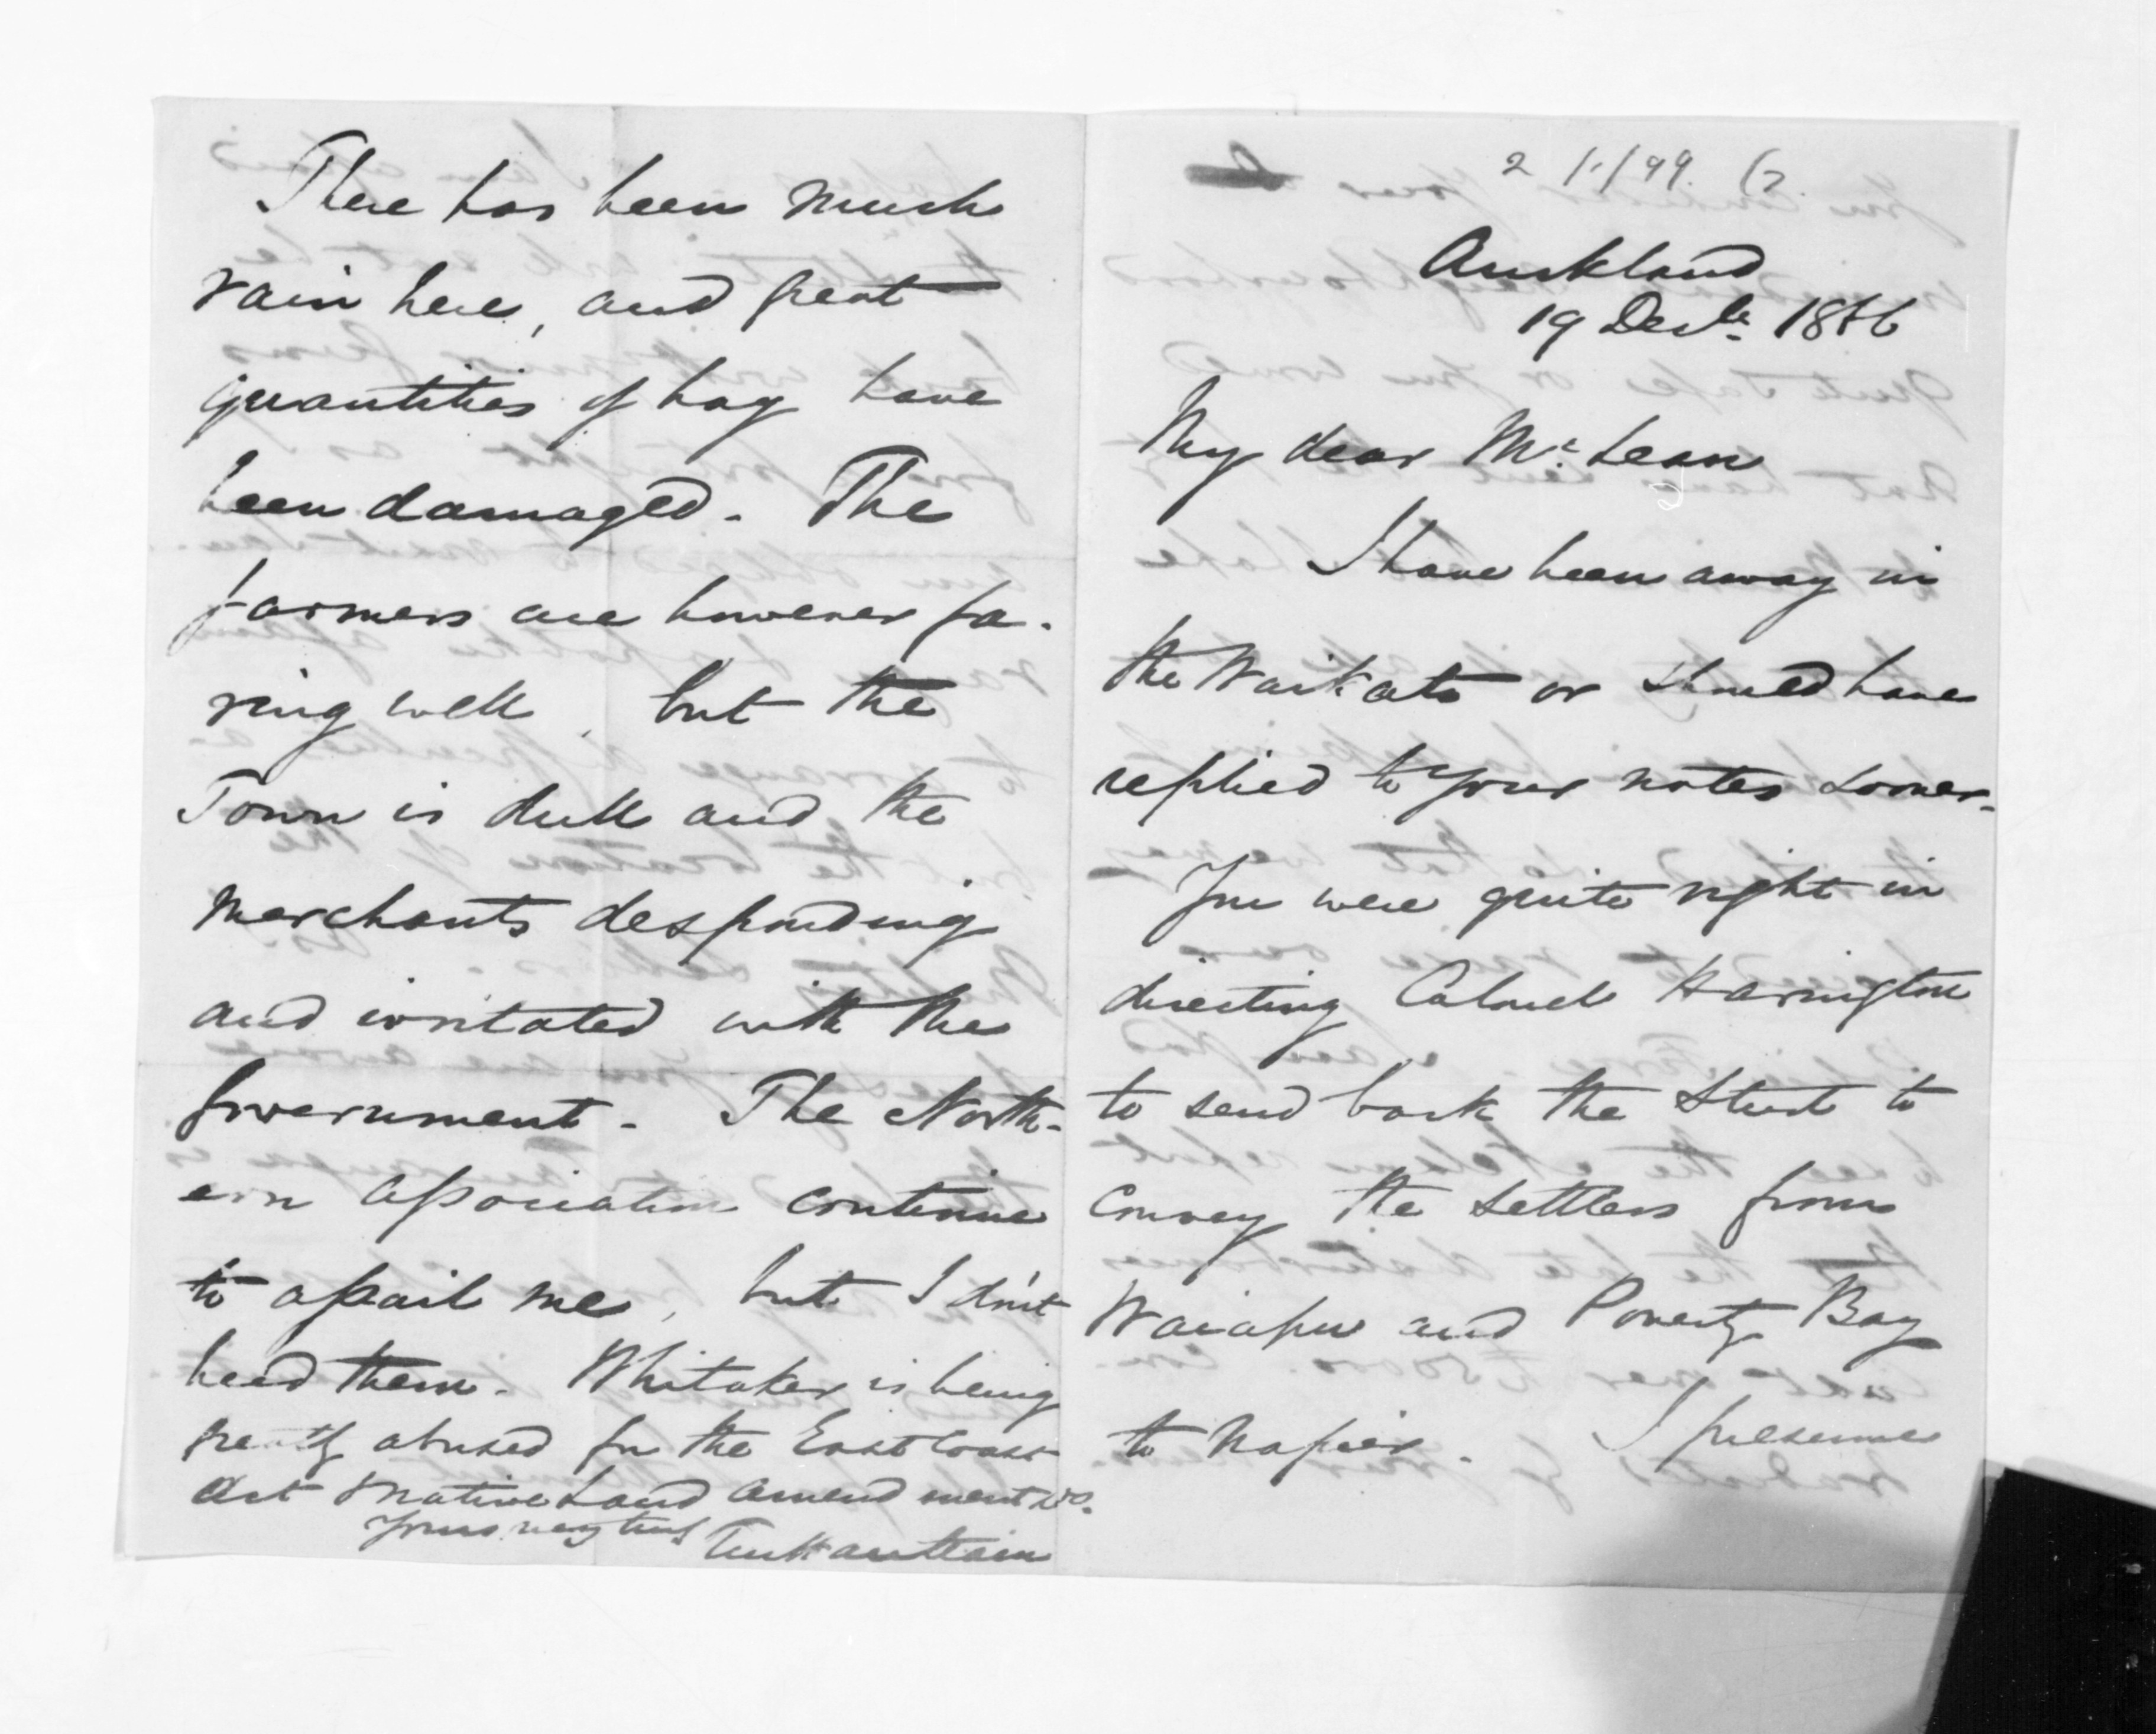 Auckland
19 Decbr 1866
My dear McLean
I have been away in
the Waikato or should have
replied to your notes sooner.
You were quite right in
directing Colonel Harington
to send back the Sturt to
convey the settlers from
Waiapu and Poverty Bay
to Napier. I presume
There has been much
rain here, and great
quantities of hay have
been damaged. The
farmers are however fa-
ring well, but the
Town is dull and the
Merchants desponding
and irritated with the
Government. The North-
ern Association continue
to assail me, but I don't
heed them. Whitaker is being
greatly abused for the East Coast
Act & Native Land Amendment do.
Yours very truly